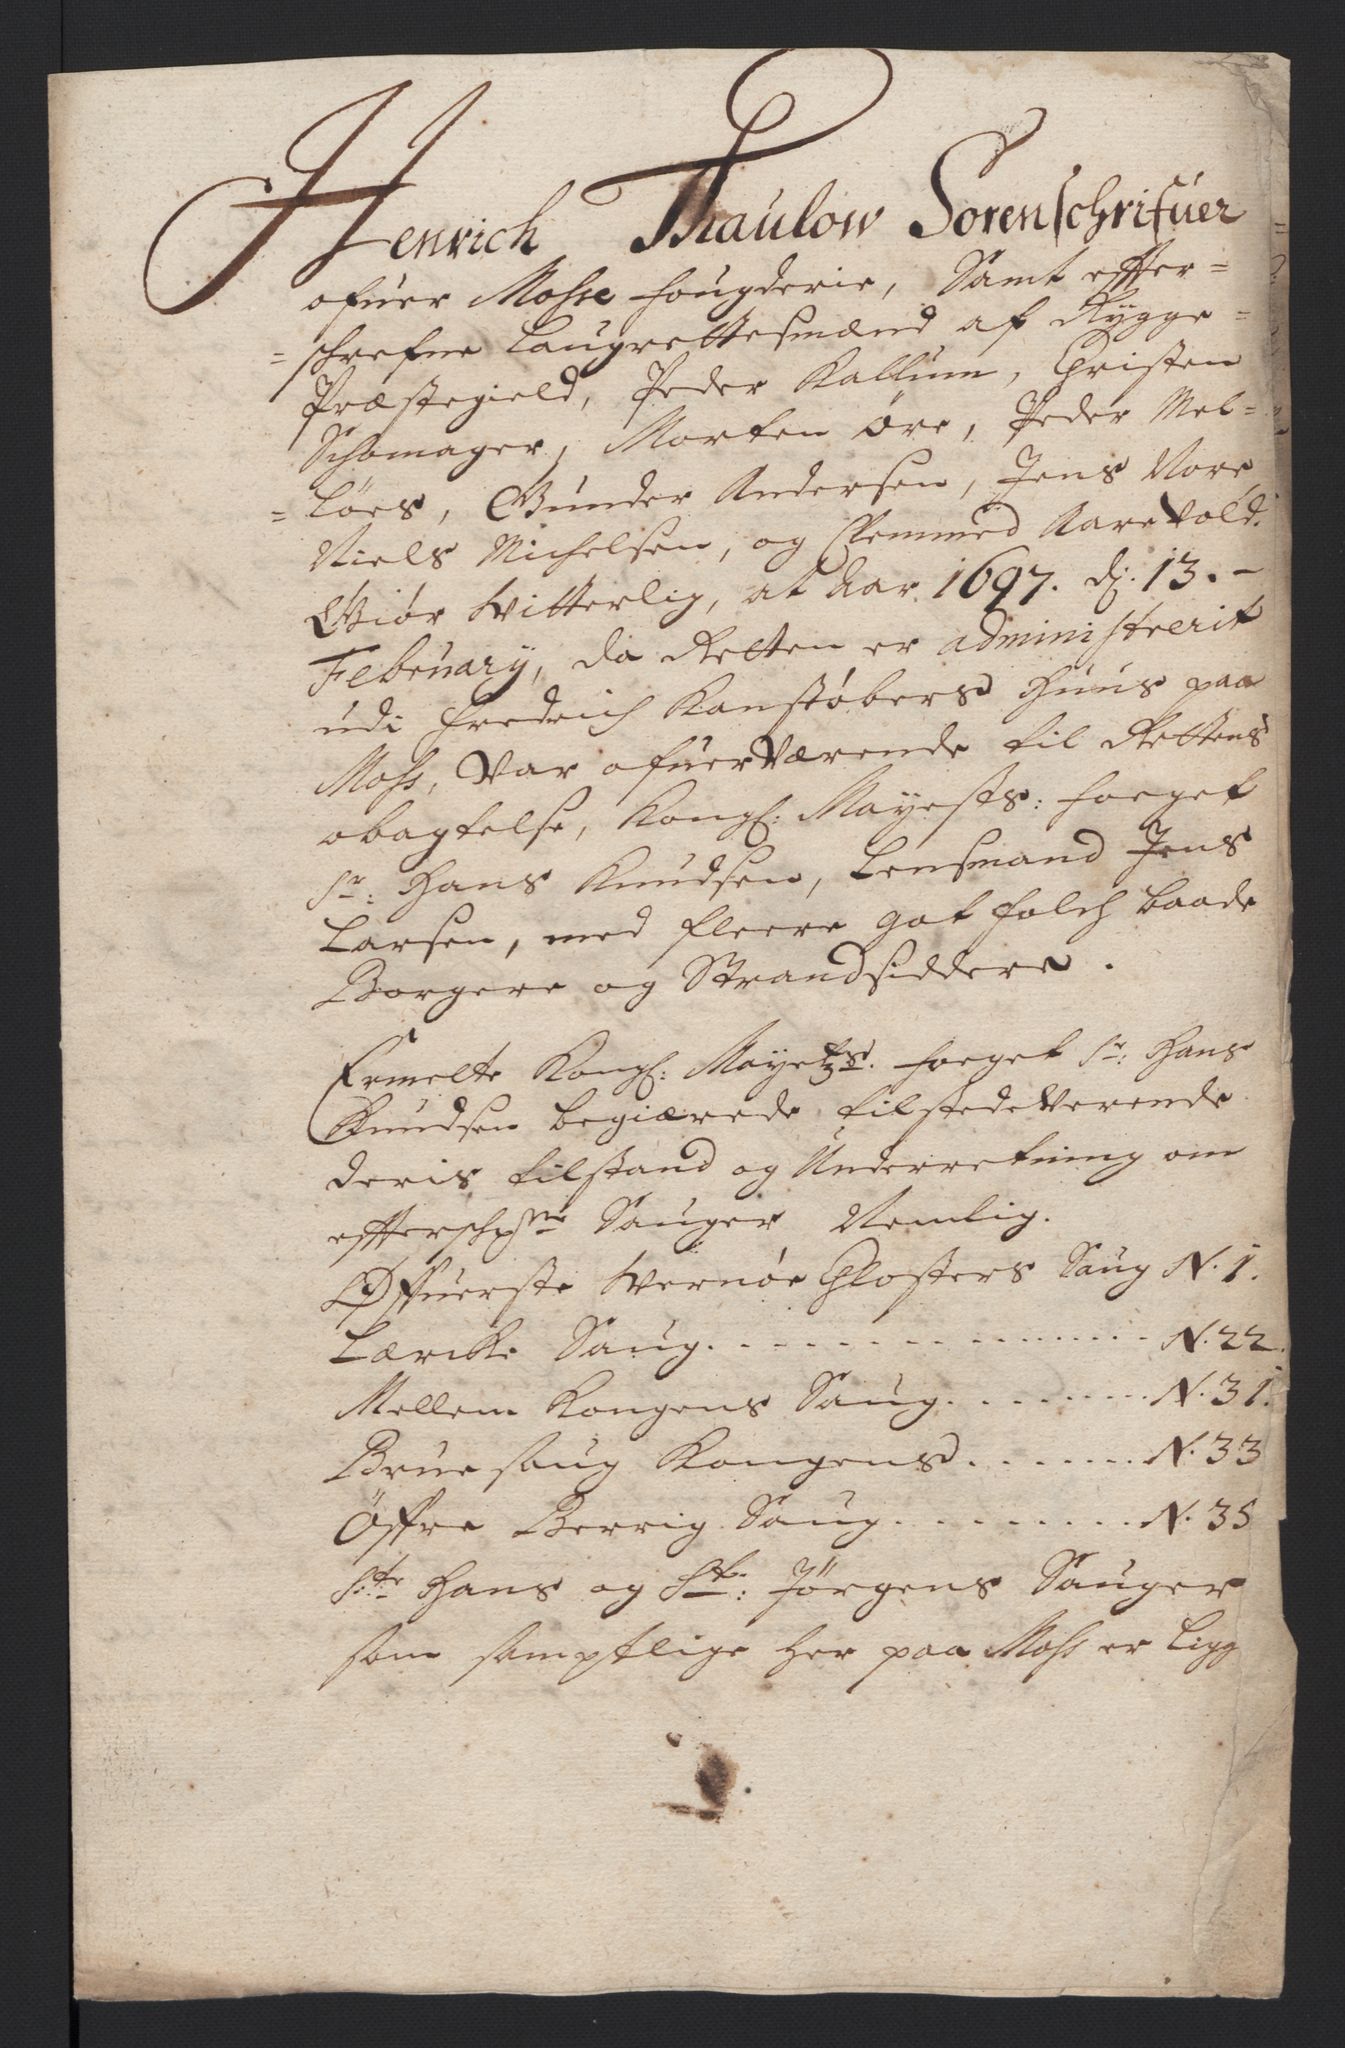 Henrich Thaulow Sorenschrifuer
ofuer Mosse fougderie, Samt effter=
=schrefne Laugrettesmænd af Rygge=
Præstegield, Peder Kallum, Christen
Schomager, Morten Øre, Peder Mel=
=löes, Gunder Andersen, Jens Nore
Niels Michelsen, og Clemmed Aarevold.
Giör Witterlig, at Aar 1697. dj. 13.-
February, da Retten er administrerit
udi Fredrich Kanstøbers Huus paa
Moss, Var ofuerværende til Rettens
obagtelse, Kongl: Mayests: foeget
Sr: Hans Knudsen, Lensmand Jens
Larsen, med fleere got folch baade
Borgere og Strandsiddere.
Ermelte Kongl: Mayetzs. foeget Sr: Hans
Knudsen begiærede tilstedeverende
deris tilstand og Underretning om
effterschrne Sauger Nemlig.
Øffuerste Wernøe Closters Saug N. 1.
Lærche Saug. - - - - - - - - - - - - - N. 22.
Mellem Kongens Saug. . . . . . . . N. 31.
Brue saug Kongens. . . . . . . N. 33
Öffre Berrig Saug. . . . . . . . . N. 35
Ste Hans og St: Jörgens Sauger
som samptlige her paa Moss er Ligg